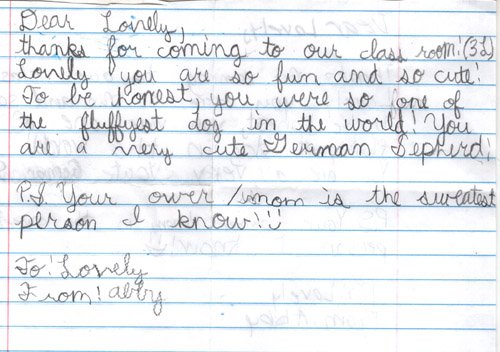 Dear Lovely,
thanks for coming to our class room! (3L)
Lovely you are so fun and so cute!
To be honest, you were so one of
the fluffyest dog in the world! You
are a very cute German Sepherd,
P.S. Your ower /mom is the sweatest
person I know!!
To: Lovely
From: abby